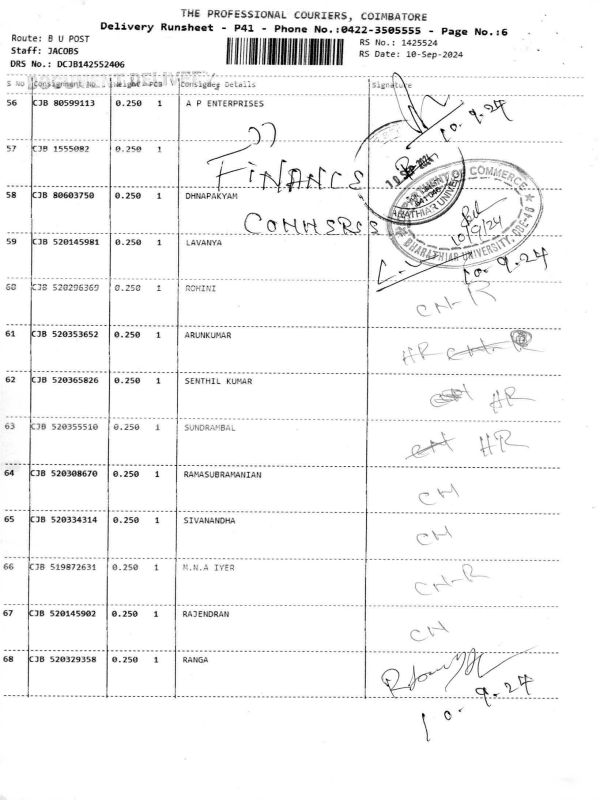 THE PROFESSIONAL COURIERS, COIMBATORE
Delivery Runsheet - P41 - Phone No.:0422-3505555 - Page No.:6
Route: B U POST
RS No.: 1425524
Staff: JACOBS
RS Date: 10-Sep-2024
DRS No.: DCJB142552406
S No Consignment No. Weight PCS Consignee Details Signature
56 CJB 80599113 0.250 1 A P ENTERPRISES
10-9-24
57 CJB 1555082 0.250 1
FINANCE
58 CJB 80603750 0.250 1 DHNAPAKYAM
COMMERCE
BHARATHIAR UNIVERSITY, CBE-46
10/9/24
59 CJB 520145981 0.250 1 LAVANYA
10-9-24
60 CJB 520296369 0.250 1 ROHINI
CN-R
61 CJB 520353652 0.250 1 ARUNKUMAR
HR CN-R
62 CJB 520365826 0.250 1 SENTHIL KUMAR
HR
63 CJB 520355510 0.250 1 SUNDRAMBAL
CN HR
64 CJB 520308670 0.250 1 RAMASUBRAMANIAN
CN
65 CJB 520334314 0.250 1 SIVANANDHA
CN
66 CJB 519872631 0.250 1 M.N.A IYER
CN-R
67 CJB 520145902 0.250 1 RAJENDRAN
CN
68 CJB 520329358 0.250 1 RANGA
10-9-24